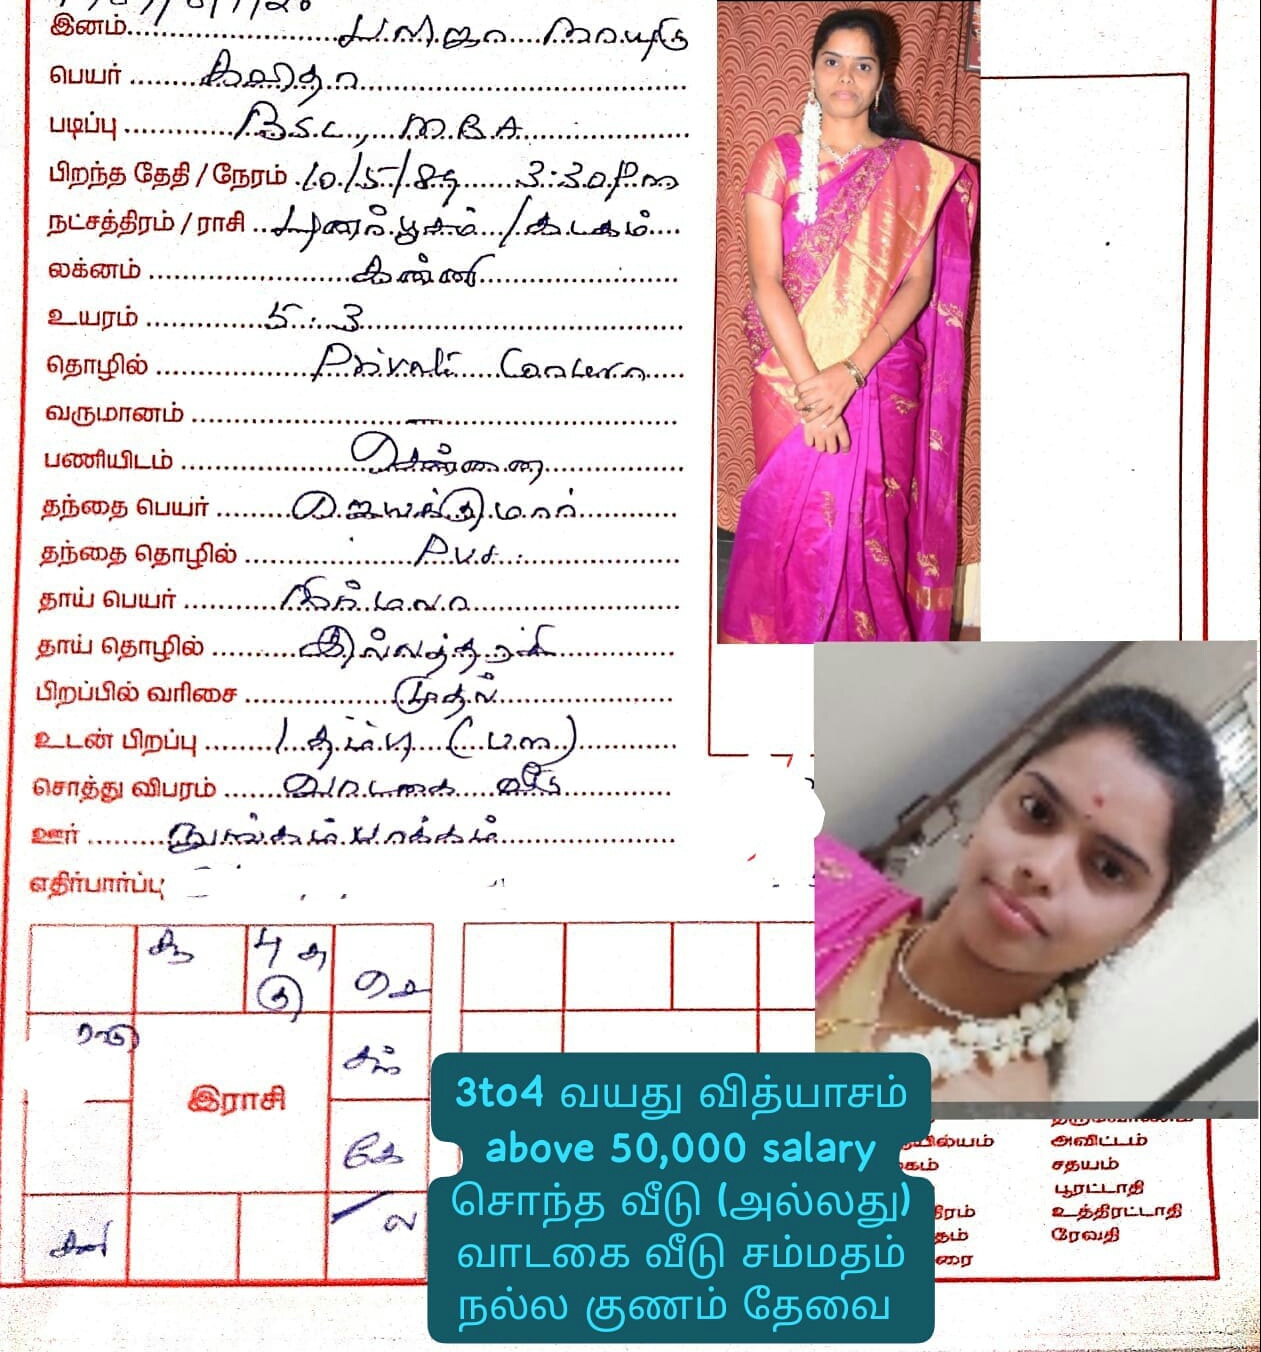 இனம் பலிஜா நாயுடு
பெயர் கவிதா
படிப்பு B.S.C., M.B.A
பிறந்த தேதி / நேரம் 10/5/89 3:30 Pm
நட்சத்திரம் / ராசி புனர்பூசம் / கடகம்
லக்னம் கன்னி
உயரம் 5.3
தொழில் Private
வருமானம் —
பணியிடம் சென்னை
தந்தை பெயர் ஜெயக்குமார்
தந்தை தொழில் Pvt
தாய் பெயர் நிர்மலா
தாய் தொழில் இல்லத்தரசி
பிறப்பில் வரிசை முதல்
உடன் பிறப்பு 1 தம்பி (ப.ம)
சொத்து விபரம் வாடகை வீடு
ஊர் நுங்கம்பாக்கம்
எதிர்பார்ப்பு
சூ
பு சு
கு
செ
ராகு
சந்
இராசி
கே
சனி
ல
3to4 வயது வித்யாசம்
above 50,000 salary
சொந்த வீடு (அல்லது)
வாடகை வீடு சம்மதம்
நல்ல குணம் தேவை
அவிட்டம்
சதயம்
பூரட்டாதி
உத்திரட்டாதி
ரேவதி